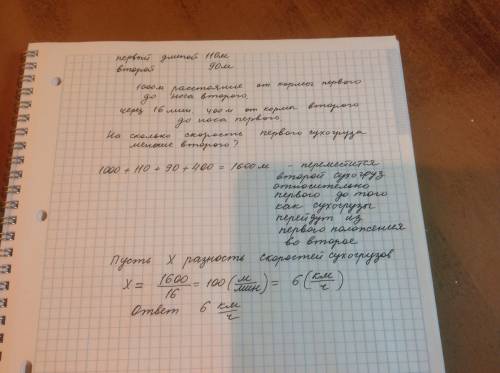 первый длиной 110м
второй 90м
1000м расстояние от кормы первого
до носа второго.
через 16 мин. 400м от кормы второго
до носа первого.
На сколько скорость первого сухогруза
меньше второго?
1000 + 110 + 90 + 400 = 1600 м - переместится
второй сухогруз
относительно
первого до того
как сухогрузы
перейдут из
первого положения
во второе
Пусть X разность скоростей сухогрузов
X = 1600/16 = 100 (м/мин) = 6 (км/ч)
Ответ 6 км/ч